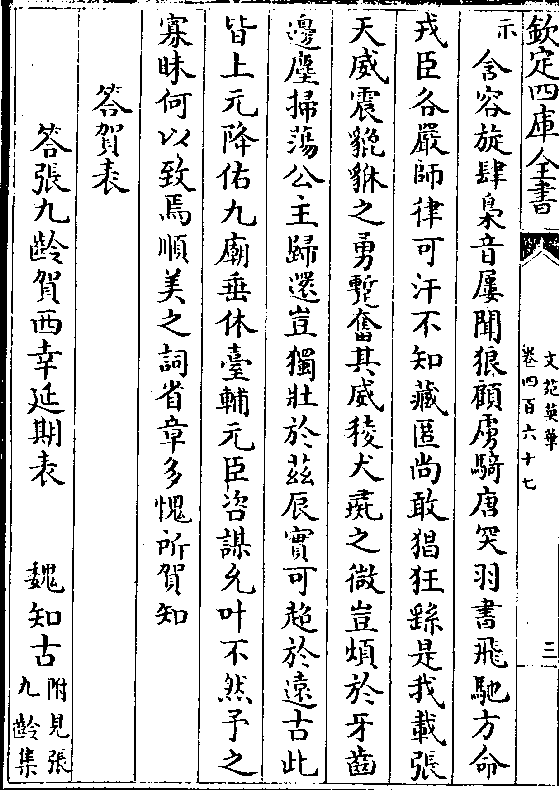 欽定四庫全書
文苑英華
卷四百六十七
三
示含容旋肆梟音屢聞狼顧虜騎唐突羽書飛馳方命
戎臣各嚴師律可汗不知藏匿尚敢猖狂繇是我載張
天威震貔貅之勇蹔奮其威稜犬羝之微豈煩於牙齒
邊塵掃蕩公主歸還豈獨壯於茲辰實可超於遠古此
皆上元降佑九廟垂休臺輔元臣咨謀允叶不然予之
寡昧何以致焉順美之詞省章多愧所賀知
答賀表
答張九齡賀西幸延期表
魏知古
附見張
九齡集